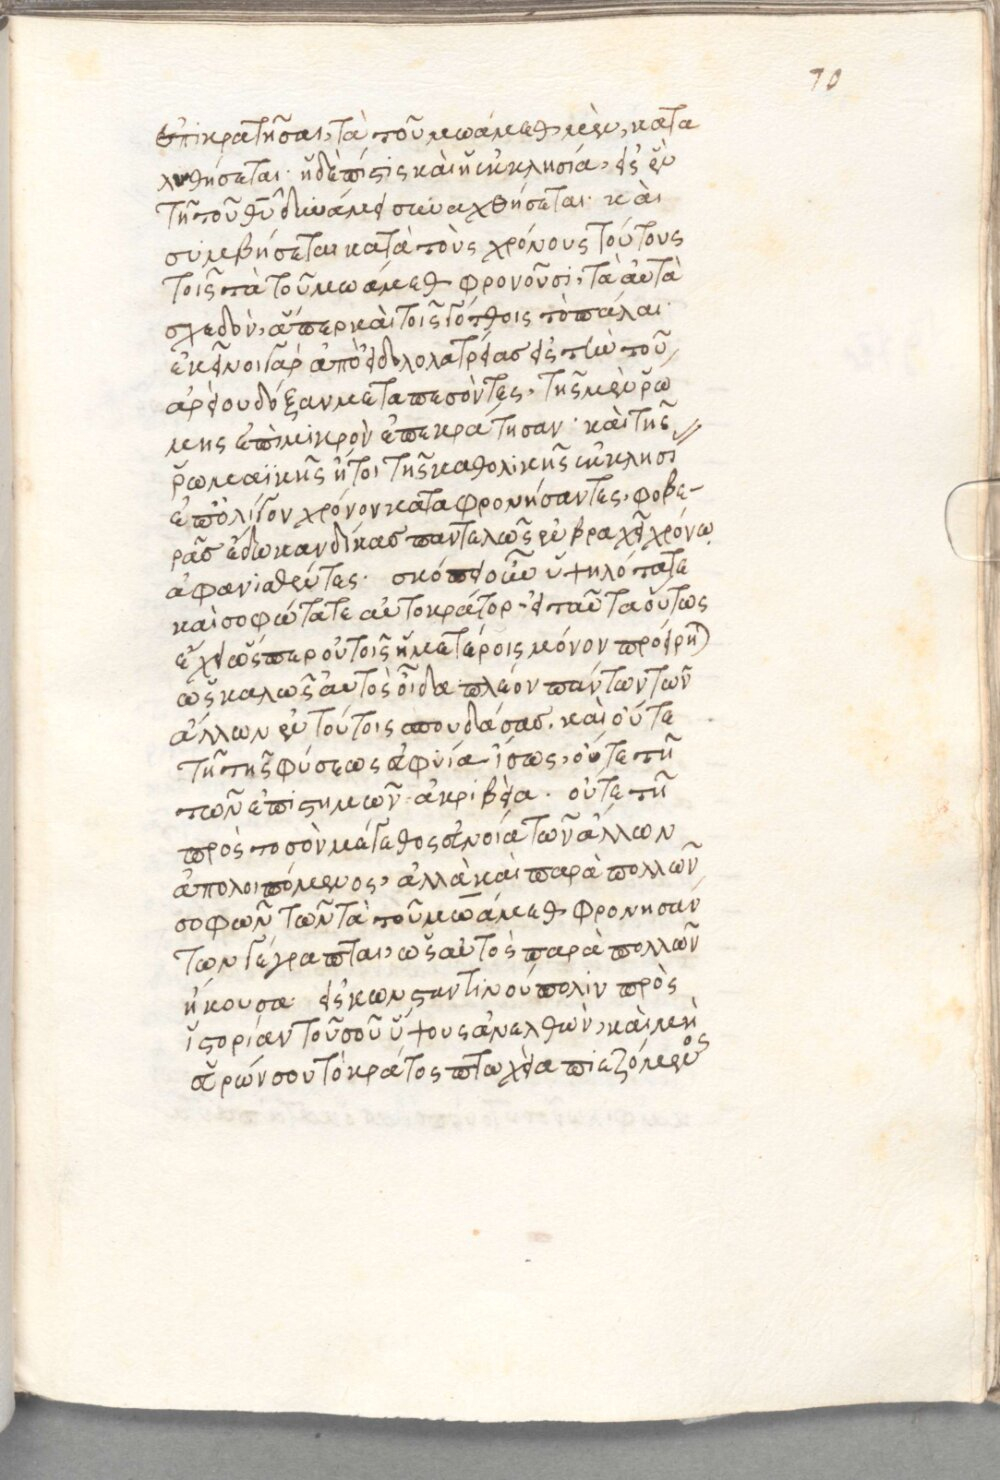 70
ἐπικρατῆσαι, τὰ τοῦ μωάμεθ μὲν, κατα
λυθήσεται· ἡ δὲ πίστις καὶ ἡ ἐκκλησία, εἰς ἓν
τῇ τοῦ θῦ δυνάμει συναχθήσεται· καὶ
συμβήσεται κατὰ τοὺς χρόνους τούτους
τοῖς τὰ τοῦ μωάμεθ φρονοῦσι, τὰ αὐτὰ
σχεδὸν, ἅπερ καὶ τοῖς γότθοις τὸ πάλαι·
ἐκεῖνοι γὰρ ἀπὸ εἰδωλολατρείας εἰς τὴν τοῦ
ἀρείου δόξαν μεταπεσόντες, τῆς μὲν ῥώ
μης ἐπὶ μικρὸν ἐπεκράτησαν· καὶ τῆς
ῥωμαϊκῆς ἤτοι τῆς καθολικῆς ἐκκλησί
ἐπ' ὀλίγον χρόνον καταφρονήσαντες, φοβε-
ρὰς ἔδωκαν δίκας παντελῶς ἐν βραχεῖ χρόνω
ἀφανισθέντες· σκόπει οὖν ὑψηλότατε
καὶ σοφώτατε αὐτοκράτορ, εἰ ταῦτα οὕτως
ἔχει ὥσπερ οὐ τοῖς ἡμετέροις μόνον προείρη)
ὡς καλῶς αὐτὸς οἶδα πλέον πάντων τῶν
ἄλλων ἐν τούτοις σπουδάσας, καὶ οὔτε
τῇ τῆς φύσεως ἀφνία ἴσως, οὔτε τῇ
τῶν ἐπιστημῶν ἀκριβεία· οὔτε τῇ
πρὸς τὸ σὸν μέγεθος εὐνοία τῶν ἄλλων
ἀπολοιπόμενος, ἀλλὰ καὶ παρὰ πολλῶν
σοφῶν τῶν τὰ τοῦ μωάμεθ φρονησάν
των γέγραπται, ὡς αὐτὸς παρὰ πολλῶν
ἤκουσα εἰς κωνσταντινούπολιν πρὸς
ἱστορίαν τοῦ σοῦ ὕψους ἀνελθὼν, καὶ μὴ
εὑρών σου τὸ κράτος πτωχεία πιεζόμενος